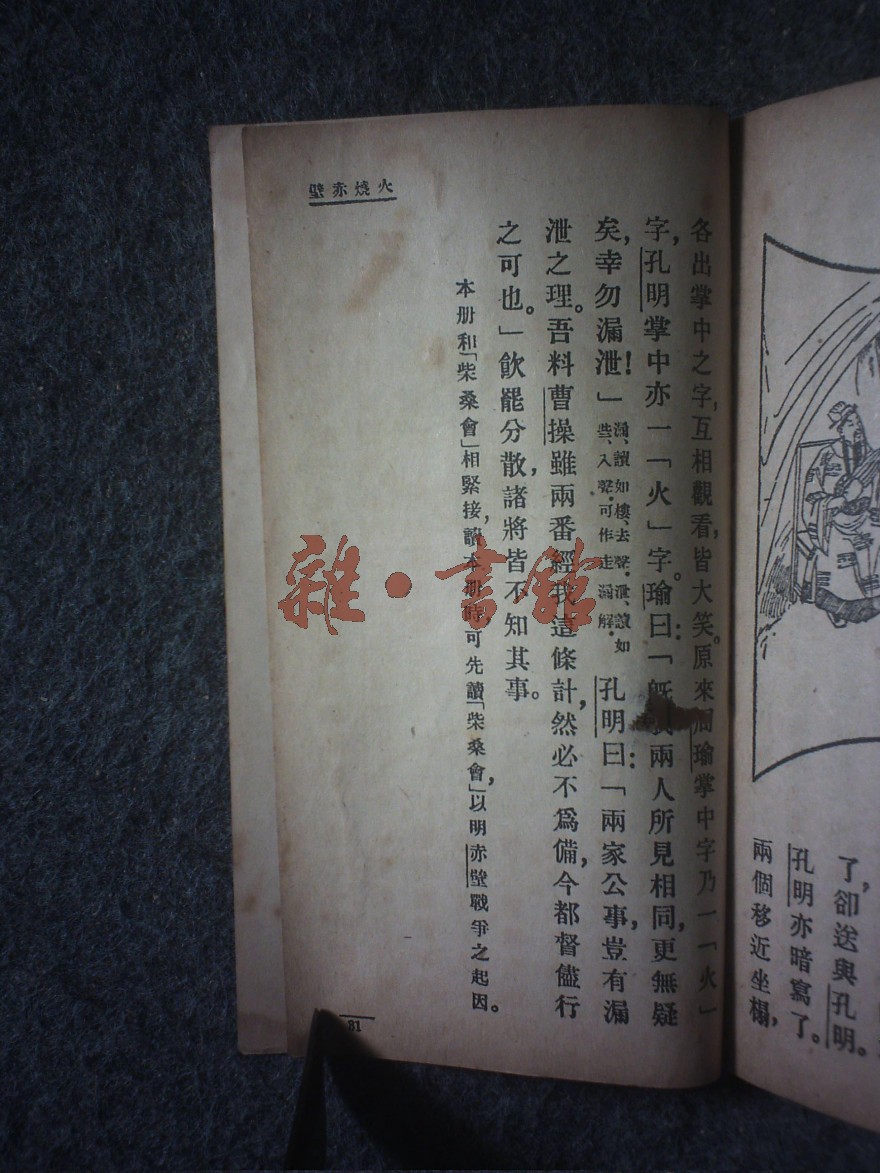 兩個移近坐榻，
孔明亦暗寫了。
了，卻送與孔明。
火燒赤壁
各出掌中之字，互相觀看，皆大笑。原來周瑜掌中字，乃一「火」
字，孔明掌中亦一「火」字。瑜曰：「既我兩人所見相同，更無疑
矣，幸勿漏泄！」
漏、讀如樓、去聲．泄、讀如
些、入聲．可作走漏解．
孔明曰：「兩家公事，豈有漏
泄之理。吾料曹操雖兩番經我這條計，然必不爲備，今都督儘行
之可也。」飲罷分散，諸將皆不知其事。
本册和「柴桑會」相緊接，讀本册時，可先讀「柴桑會」，以明赤壁戰爭之起因。
81
雜·書館